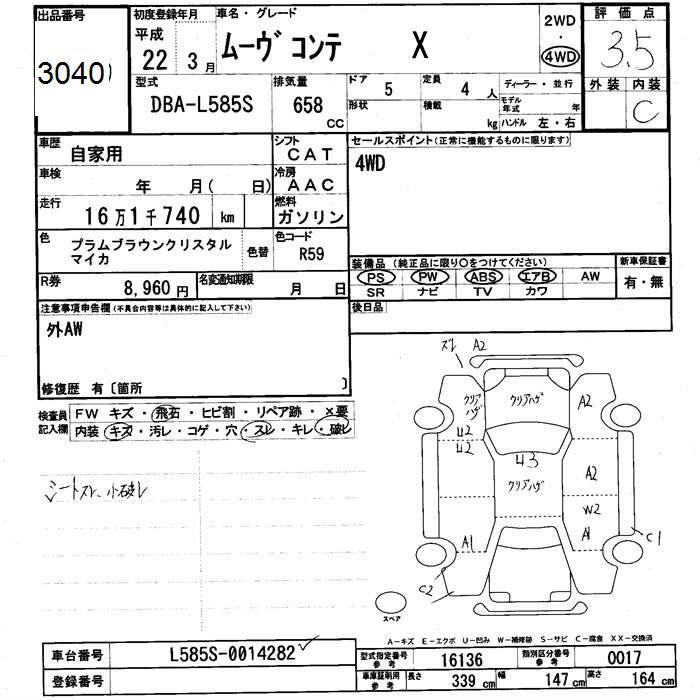 出品番号 初度登録年月 車名・グレード 2WD 評価点
3040 平成 22 3月 ムーヴ コンテ X ・ 4WD 3.5
型式 排気量 ドア 定員 ディーラー・並行 外装 内装
DBA-L585S 658 CC 5 4人 モデル年式 年 C
形状 積載 kg ハンドル 左・右
車歴 自家用 シフト CAT セールスポイント(正常に機能するものに限ります)
車検 年 月( 日) 冷房 AAC 4WD
走行 16万1千740 km 燃料 ガソリン
色 プラムブラウンクリスタル 色替 色コード R59
マイカ
装備品(純正品に限り○をつけてください) 新車保証書
R券 8,960円 名変通知期限 月 日 PS PW ABS エアB AW 有・無
SR ナビ TV カワ
注意事項申告欄(不具合内容等は具体的に記入して下さい) 後日品
外AW
修復歴 有〔箇所 〕
検査員記入欄 FW キズ・飛石・ヒビ割・リペア跡・×要
内装 キズ・汚レ・コゲ・穴・スレ・キレ・破レ
シートスレ、小破レ
ズレ A2
クリアハゲ クリアハゲ A2
U2
U2
U3
クリアハゲ A2
W2
A1 A1 C1
C2
スペア
A-キズ E-エクボ U-凹み W-補修跡 S-サビ C-腐食 XX-交換済
車台番号 L585S-0014282 型式指定番号 参考 16136 類別区分番号 参考 0017
登録番号 車庫証明用 参考 長さ 339 cm 幅 147 cm 高さ 164 cm